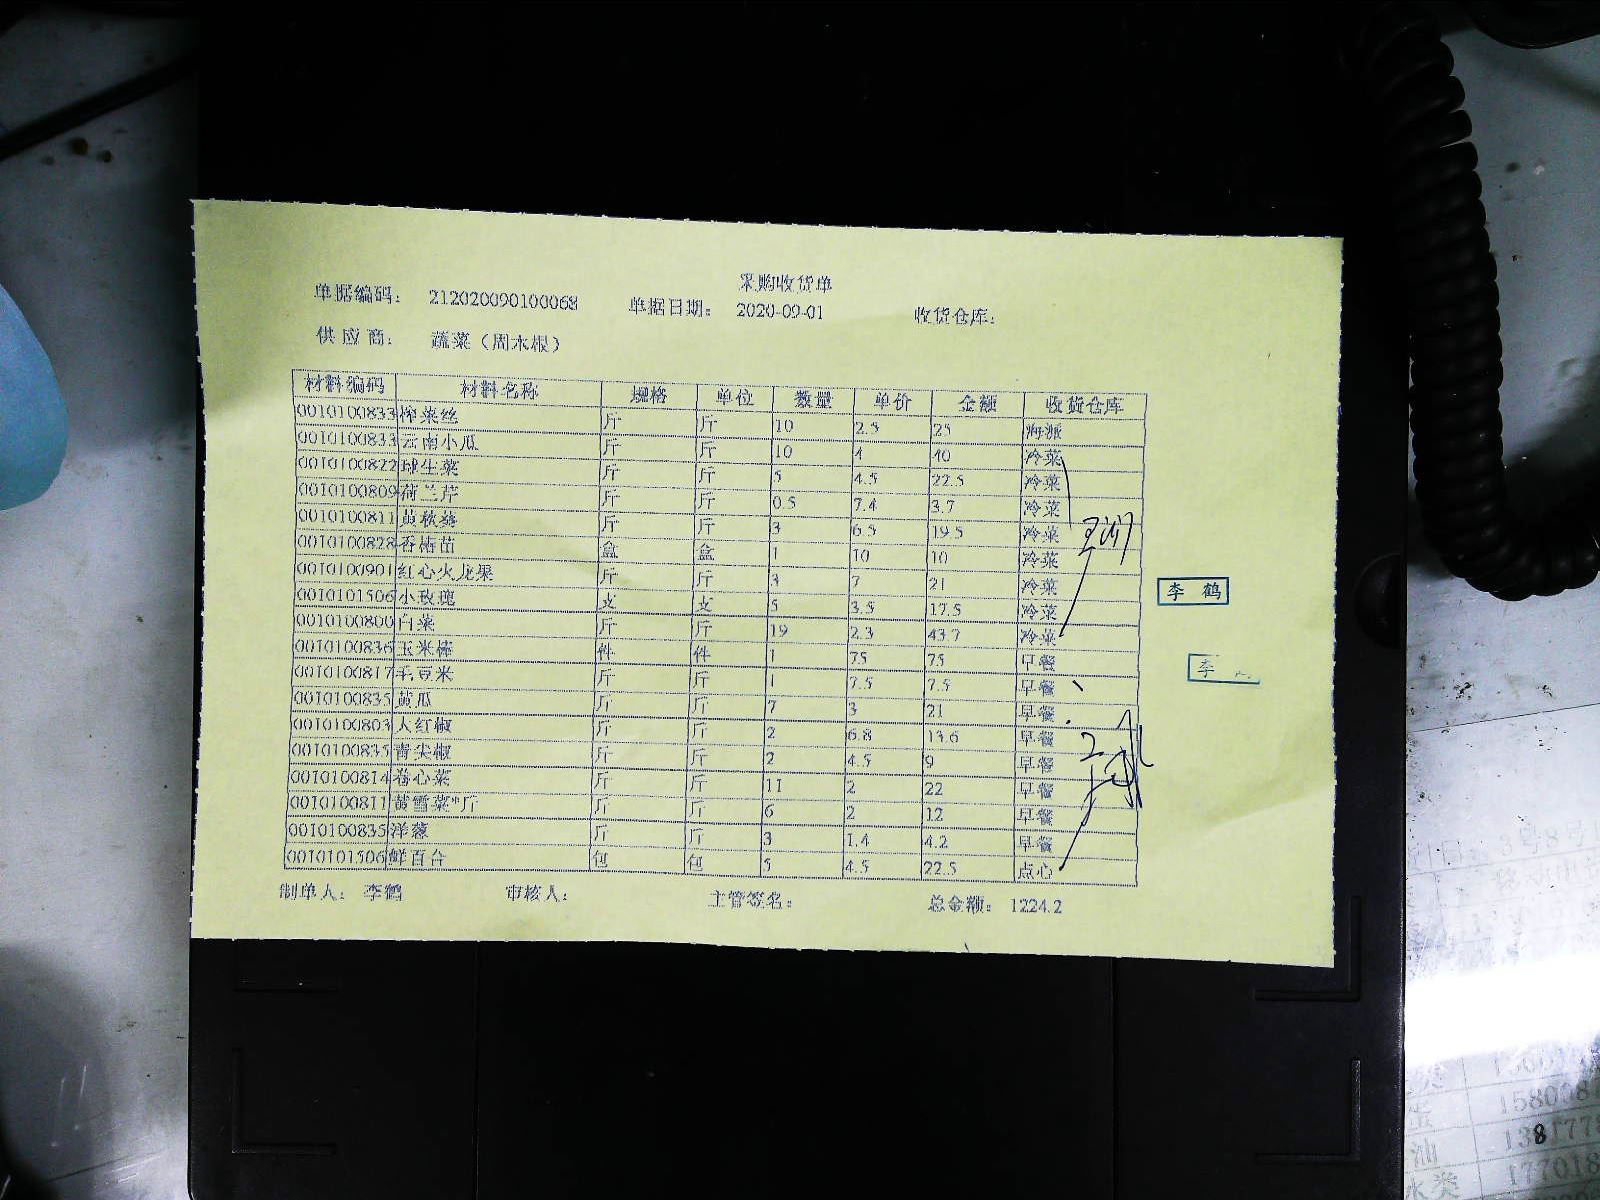 采购收货单
单据编码： 212020090100068 单据日期： 2020-09-01 收货仓库：
供应商： 蔬菜（周木根）
材料编码 材料名称 规格 单位 数量 单价 金额 收货仓库
0010100833 榨菜丝 斤 斤 10 2.5 25 海派
0010100833 云南小瓜 斤 斤 10 4 40 冷菜
0010100822 球生菜 斤 斤 5 4.5 22.5 冷菜
0010100809 荷兰芹 斤 斤 0.5 7.4 3.7 冷菜
0010100811 黄秋葵 斤 斤 3 6.5 19.5 冷菜
0010100828 香椿苗 盒 盒 1 10 10 冷菜
0010100901 红心火龙果 斤 斤 3 7 21 冷菜
0010101506 小玫瑰 支 支 5 3.5 17.5 冷菜
0010100800 白菜 斤 斤 19 2.3 43.7 冷菜
0010100836 玉米棒 件 件 1 75 75 早餐
0010100817 毛豆米 斤 斤 1 7.5 7.5 早餐
0010100835 黄瓜 斤 斤 7 3 21 早餐
0010100803 大红椒 斤 斤 2 6.8 13.6 早餐
0010100835 青尖椒 斤 斤 2 4.5 9 早餐
0010100814 卷心菜 斤 斤 11 2 22 早餐
0010100811 黄雪菜*斤 斤 斤 6 2 12 早餐
0010100835 洋葱 斤 斤 3 1.4 4.2 早餐
0010101506 鲜百合 包 包 5 4.5 22.5 点心
李 鹤
李
制单人： 李鹤 审核人： 主管签名： 总金额： 1224.2
油